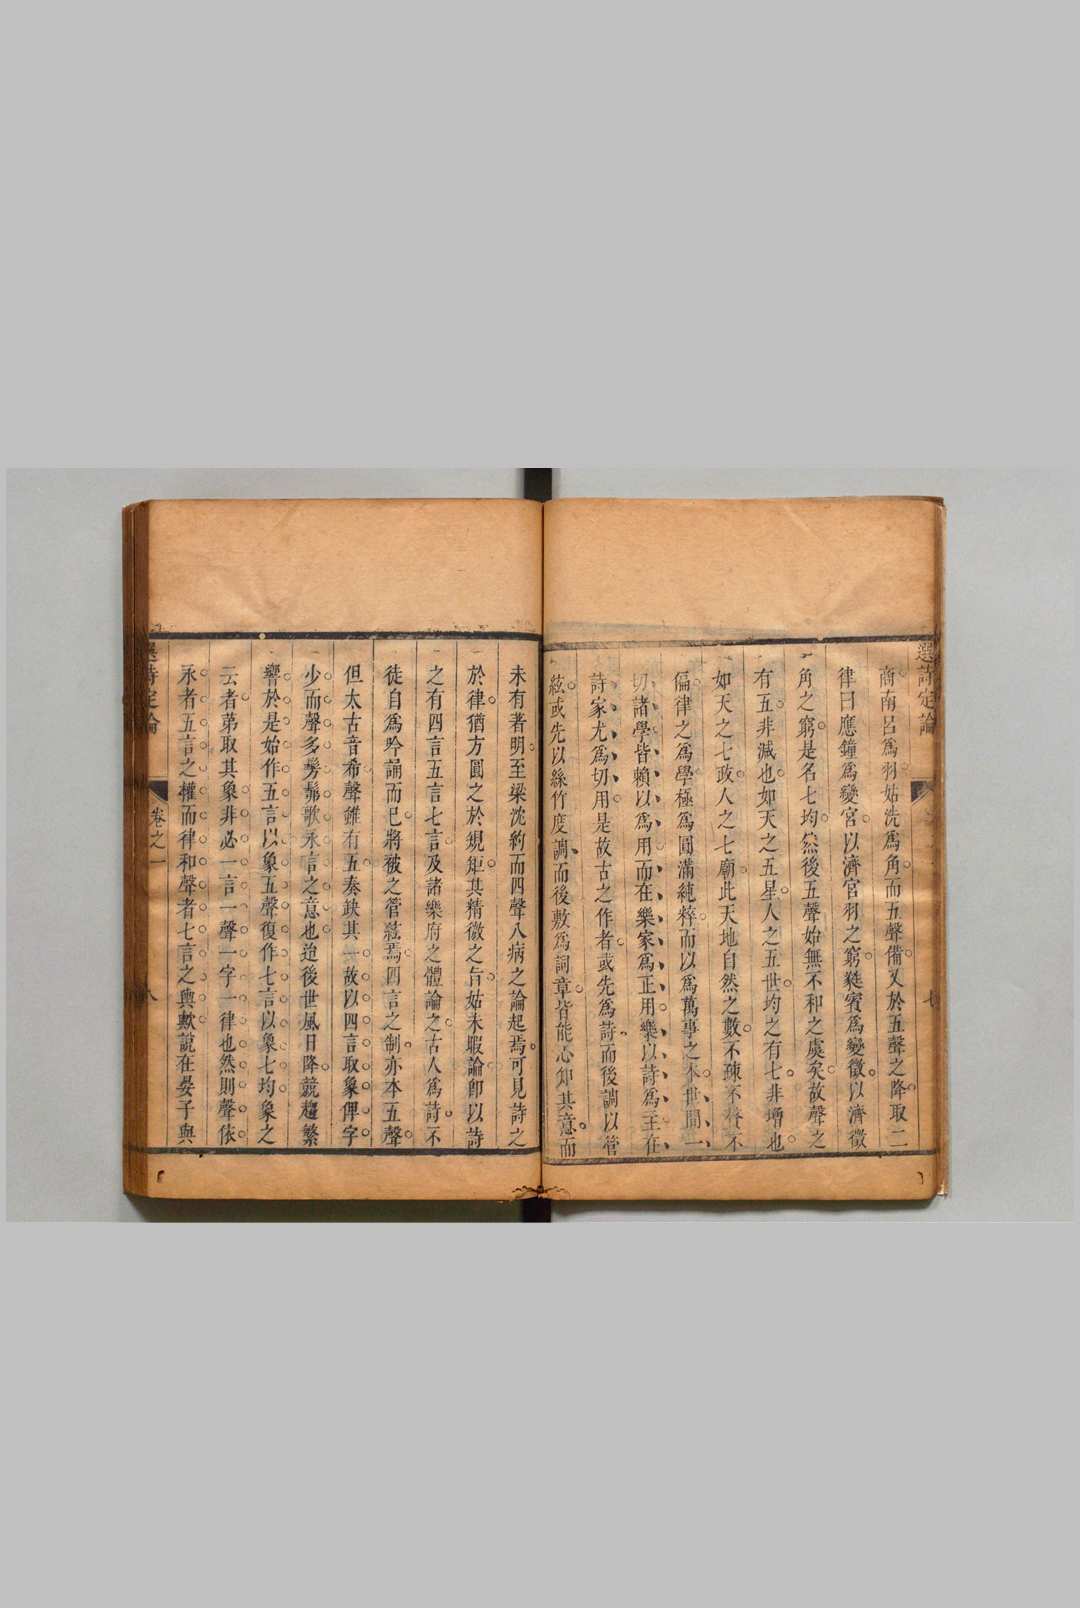 選詩定論
商南呂爲羽姑洗爲角而五聲備又於五聲之降取二
律曰應鐘爲變宮以濟宮羽之窮蕤賓爲變徵以濟徵
角之窮是名七均然後五聲始無不和之處矣故聲之
有五非減也如天之五星人之五世均之有七非增也
如天之七政人之七廟此天地自然之數不疎不贅不
偏律之爲學極爲圓滿純粹而以爲萬事之本世間一
切諸學皆賴以爲用而在樂家爲正用樂以詩爲主在
詩家尤爲切用是故古之作者或先爲詩而後調以管
絃或先以絲竹度調而後敷爲詞章皆能心知其意而
未有著明至梁沈約而四聲八病之論起焉可見詩之
於律猶方圓之於規矩其精微之旨姑未暇論卽以詩
之有四言五言七言及諸樂府之體論之古人爲詩不
徒自爲吟誦而已將被之管絃焉四言之制亦本五聲
但太古音希聲雖有五奏缺其一故以四言取象俾字
少而聲多髣髴歌永言之意也迨後世風日降競趨繁
響於是始作五言以象五聲復作七言以象七均象之
云者第取其象非必一言一聲一字一律也然則聲依
永者五言之權而律和聲者七言之輿歟說在晏子與
選詩定論
卷之一
八